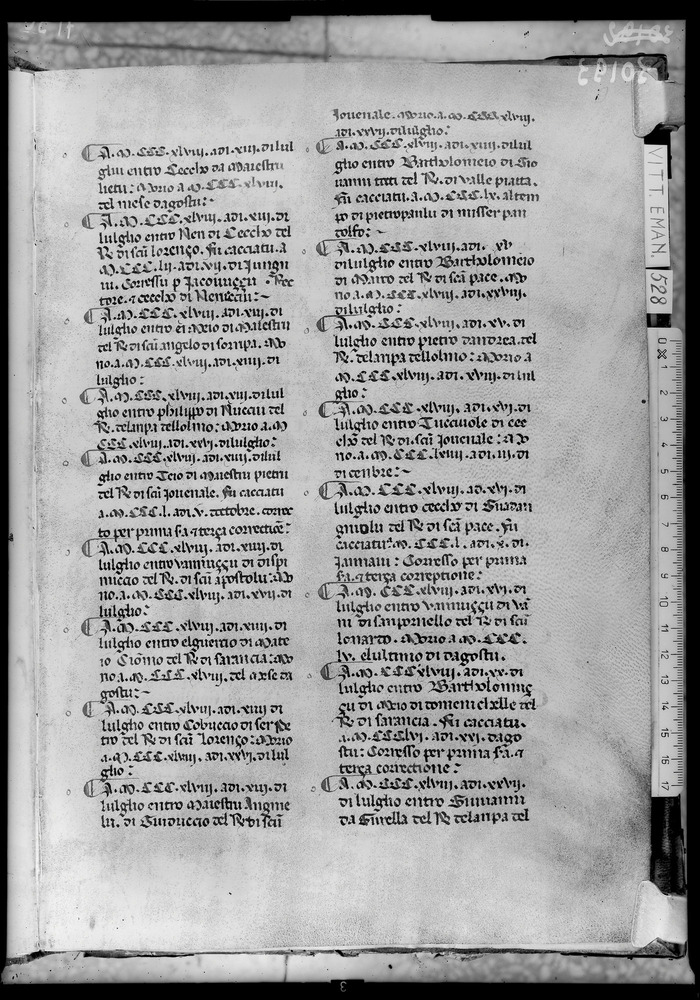 A. M. CCC. xlviii. adi. xiii. di lul
gliu entro Ceccho da Maiestru
lictu: Morio a M. CCC. xlviii.
del mese dagostu:
A. M. CCC. xlviii. adi. xiii. di
lulglio entro Nen di Ceccho del
R̃ di scũ lorenço. Fu cacciatu. a
M. CCC. lii. adi. vii. di Iungn
iu. Corressu p Iacouuççu. Rec
tore. &amp; ceccho di
A. M. CCC. xlviii. adi. xiii. di
lulglio entro Meio di Maiestru
del R̃ di scũ angelo di sornpa. Mo
rio. a. M. CCC. xlviii. adi. xviii. di
lulglio:
A. M. CCC. xlviii. adi. xiii. di lul
glio entro philippo di Nucciu del
R̃. telanpa tellolmo: Morio a. M
CCC. xlviii. adi. xxvi. di lulglio:
A. M. CCC. xlviii. adi. xiiii. di lul
glio entro Teio di Maiestru pietru
del R̃ di scũ Iouenale. Fu cacciatu
a. M. CCC. l. adi. v. dectobre. correc
to per prima f.a &amp; terça correctiõe:
A. M. CCC. xlviii. adi. xiiii. di
lulglio entro vannuççu di dispi
nuccio del R̃. di scũ apostolu: Mo
rio. a. M. CCC. xlviii. adi. xvii. di
lulglio:
A. M. CCC. xlviii. adi. xiiii. di
lulglio entro elguercio di Mate
io Ciomo del R̃ di sarancia: Mo
rio a. M. CCC. xlviii. del Mese da
gostu:
A. M. CCC. xlviii. adi. xiiii. di
lulglio entro Cobuccio di ser Pe
tro del R̃ di scũ Lorenço: Morio
a. M. CCC. xlviii. adi. xxvi. di lul
glio:
A. M. CCC. xlviii. adi. xiii. di
lulglio entro Maiestru Angnie
lu. di Guiduccio del R̃ di scũ
Iouenale. Morio. a. M. CCC. xlviii.
adi. xxvii. di lulglio:
A. M. CCC. xlviii. adi. xiiii. di lul
glio entro Bartholomeio di Gio
uanni toti del R̃. di valle piatta.
Fu cacciatu. a. M. CCC. lx. al tem
po di pietropaulu di misser pan
tolfo:
A. M. CCC. xlviii. adi. xv
di lulglio entro Bartholomeio
di Marco del R̃ di scã pace. Mo
rio a. M. CCC. xlviii. adi. xxviii.
di lulglio:
A. M. CCC. xlviii. adi. xv. di
lulglio entro pietro dandrea. del
R̃. telanpa tellolmo: Morio a
M. CCC. xlviii. adi. xviii. di lul
glio:
A. M. CCC. xlviii. adi. xvi. di
lulglio entro Tucciuole di cec
cho del R̃ di scũ Iouenale: Mo
rio. a. M. CCC. lxiii. adi. iii. di
dicenbre:
A. M. CCC. xlviii. ad. xvi. di
lulglio entro ceccho di Guadan
gniolu del R̃ di scã pace. Fu
cacciatu. M. CCC. l. adi. x. di.
Iannaiu: Corresso per prima
f.a. &amp; terça correptione:
A. M. CCC. xlviii. adi. xvi. di
lulglio entro vannuççu di vã
ni di sanporniello del R̃ di scũ
lonardo. Morio a. M. CCC.
lv. el ultimo di dagostu.
A. M. CCC xlviii. adi. xx. di
lulglio entro Bartholomuç
çu di Meio di tomenichelle del
R̃ di sarancia. Fu cacciatu.
a. M. CCC lvi. adi. xxi. dago
stu: Corresso per prima f.a. &amp;
terça correctione:
A. M. CCC. xlviii. adi. xxvii.
di lulglio entro Giuuanni
da Giuella del R̃ telanpa tel
VITT. EMAN. 528
0 1 2 3 4 5 6 7 8 9 10 11 12 13 14 15 16 17
30193
3